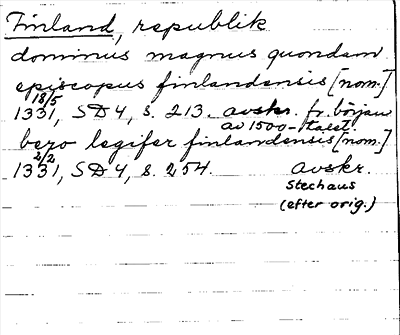 Finland, republik
dominus magnus quondam
episcopus finlandensis [nom.]
18/5
1331, SD4, s. 213. avskr. fr. början
av 1500-talet.
bero legifer finlandensis [nom.]
2/2
1331, SD4, s. 254. avskr.
Stechaus
(efter orig.)